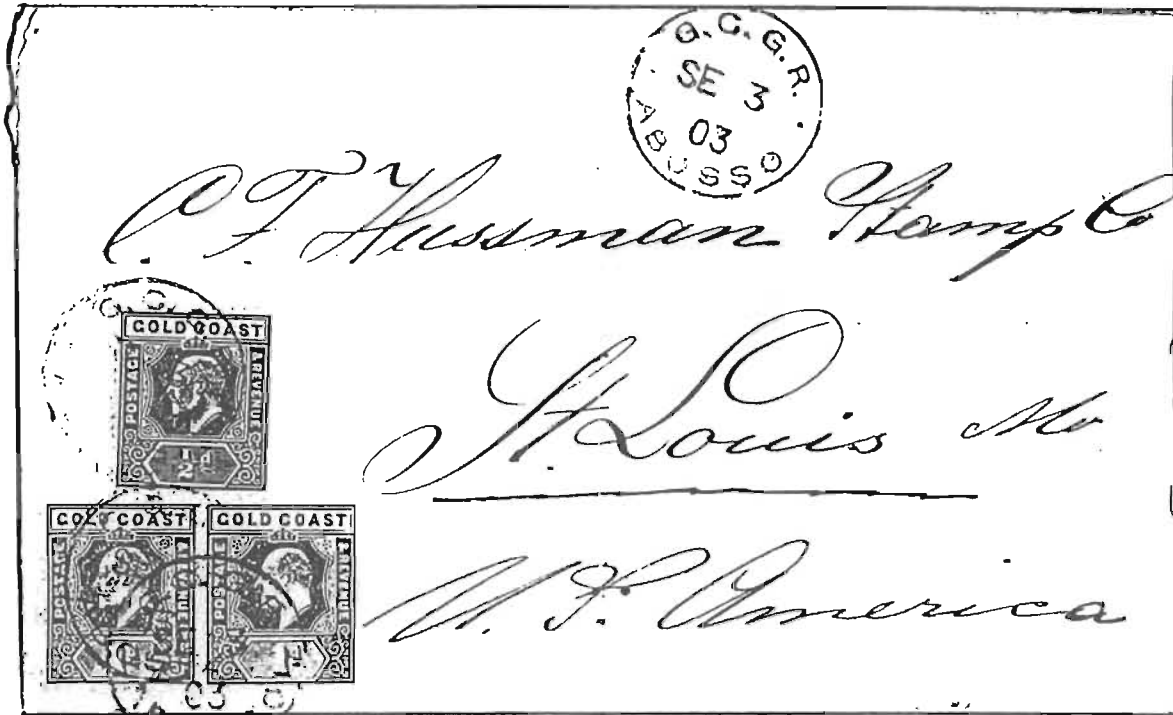 G.C.G.R.
SE 3
03
ABOSSO
C. F. Hussman Stamp Co
St. Louis Mo
U. S. America
G.C.
GOLD COAST
POSTAGE
& REVENUE
½d
GOLD COAST
POSTAGE
& REVENUE
GOLD COAST
POSTAGE
& REVENUE
1d
03